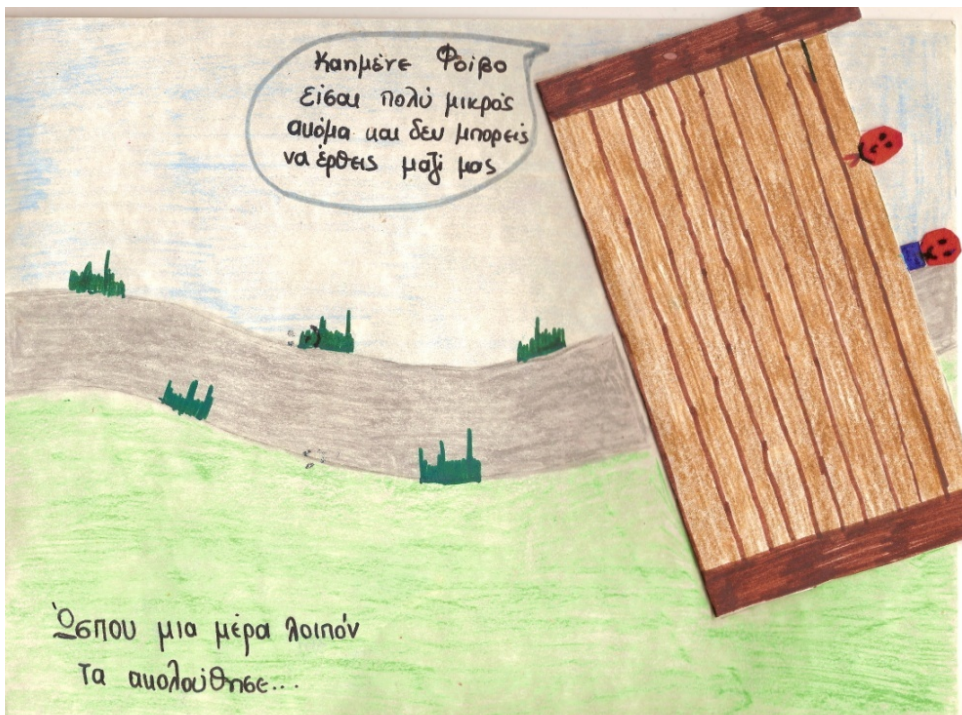 Καημένε Φοίβο
Είσαι πολύ μικρός
ακόμα και δεν μπορείς
να έρθεις μαζί μας
Ώσπου μια μέρα λοιπόν
τα ακολούθησε...